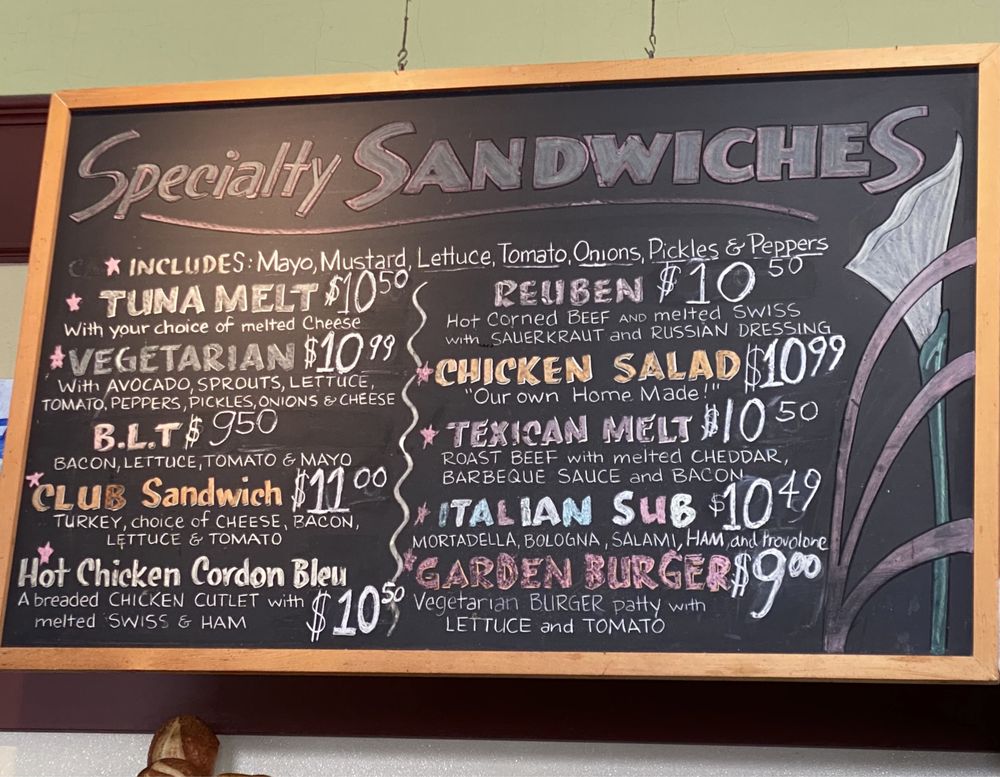 Specialty SANDWICHES
★ INCLUDES: Mayo, Mustard, Lettuce, Tomato, Onions, Pickles & Peppers
★ TUNA MELT $10.50
With your choice of melted Cheese
★ VEGETARIAN $10.99
With AVOCADO, SPROUTS, LETTUCE,
TOMATO, PEPPERS, PICKLES, ONIONS & CHEESE
B.L.T $9.50
BACON, LETTUCE, TOMATO & MAYO
★ CLUB Sandwich $11.00
TURKEY, choice of CHEESE, BACON,
LETTUCE & TOMATO
★ Hot Chicken Cordon Bleu
A breaded CHICKEN CUTLET with $10.50
melted SWISS & HAM
REUBEN $10.50
Hot Corned BEEF AND melted SWISS
with SAUERKRAUT and RUSSIAN DRESSING
★ CHICKEN SALAD $10.99
"Our own Home Made!"
★ TEXICAN MELT $10.50
ROAST BEEF with melted CHEDDAR,
BARBEQUE SAUCE and BACON
★ ITALIAN SUB $10.49
MORTADELLA, BOLOGNA, SALAMI, HAM, and Provolone
★ GARDEN BURGER $9.00
Vegetarian BURGER patty with
LETTUCE and TOMATO